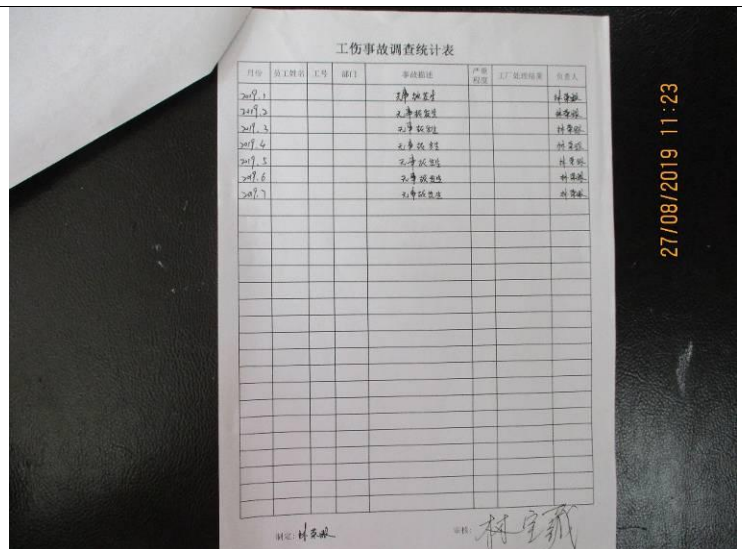 工伤事故调查统计表
月份 员工姓名 工号 部门 事故描述 严重程度 工厂处理结果 负责人
2019.1 无事故发生
2019.2 无事故发生
2019.3 无事故发生
2019.4 无事故发生
2019.5 无事故发生
2019.6 无事故发生
2019.7 无事故发生
制定: 审核:
27/08/2019 11:23